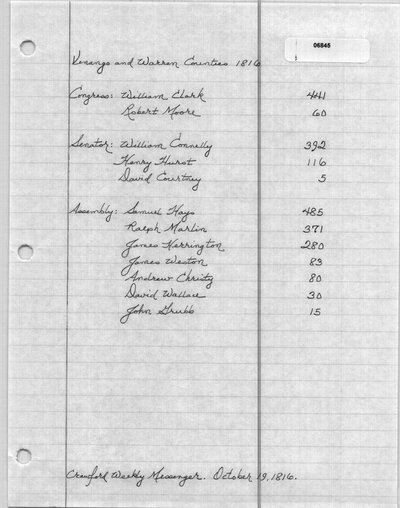 06845
Venango and Warren Counties 1816
Congress: William Clark 441
Robert Moore 60
Senator: William Connelly 392
Henry Hurst 116
David Courtney 5
Assembly: Samuel Hays 485
Ralph Marlin 371
James Herrington 280
James Weston 83
Andrew Christy 80
David Wallace 30
John Grubb 15
Crawford Weekly Messenger. October 19, 1816.